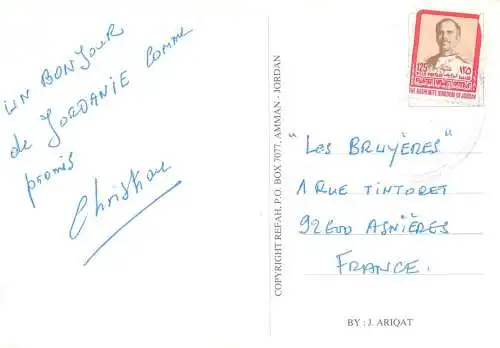 UN BONJOUR
de JORDANIE COMME
promis
Christiane
COPYRIGHT REFAH, P.O. BOX 7077, AMMAN - JORDAN
125 ١٢٥
THE HASHEMITE KINGDOM OF JORDAN
"LES BRUYÈRES"
1 RUE TINTORET
92600 ASNIÈRES
FRANCE.
BY : J. ARIQAT